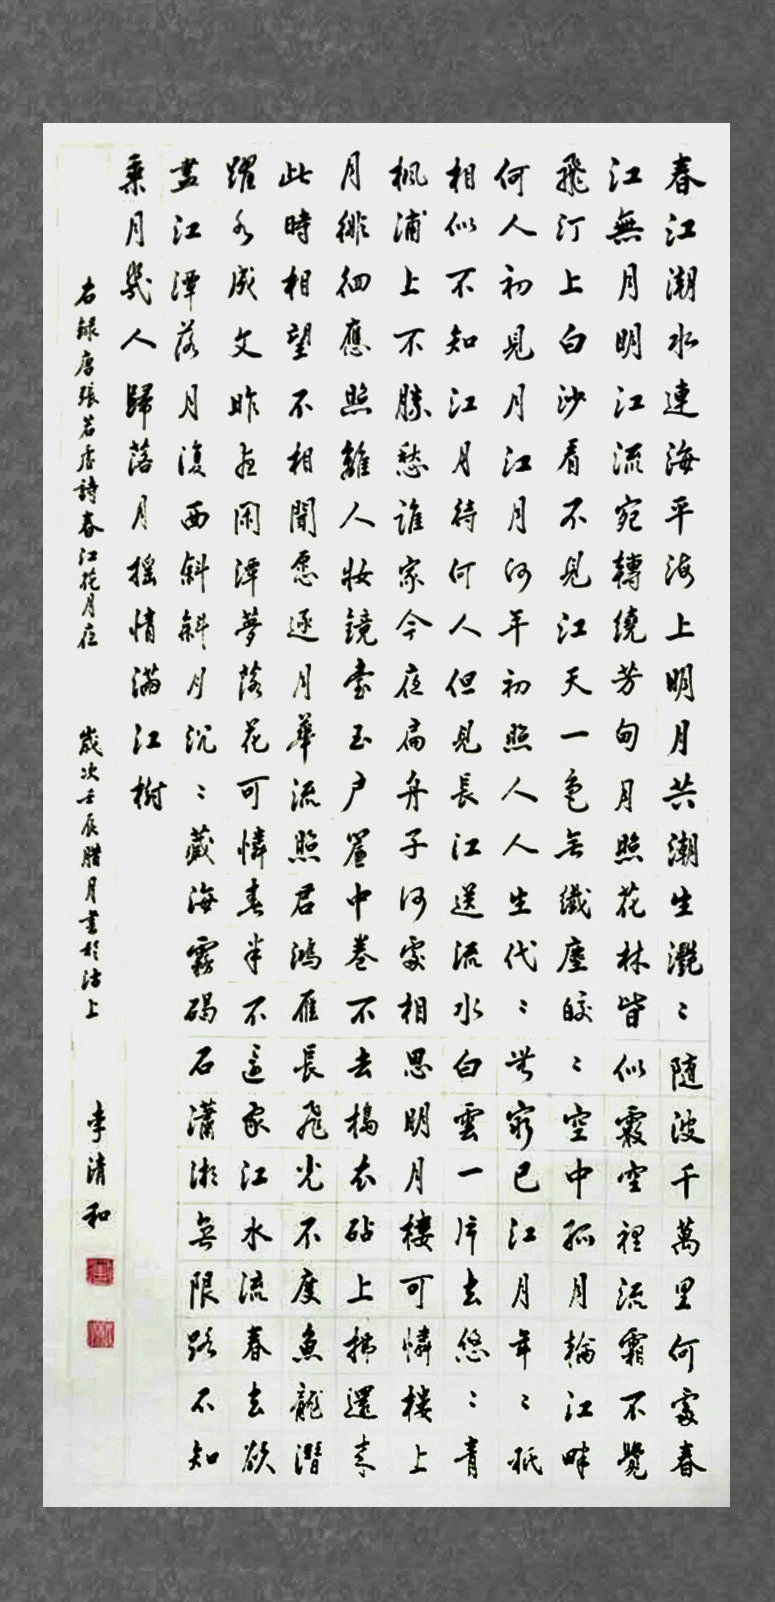 春江潮水連海平海上明月共潮生灔〻隨波千萬里何處春
江無月明江流宛轉繞芳甸月照花林皆似霰空裡流霜不覺
飛汀上白沙看不見江天一色無纖塵皎〻空中孤月輪江畔
何人初見月江月何年初照人人生代〻無窮已江月年〻祇
相似不知江月待何人但見長江送流水白雲一片去悠〻青
楓浦上不勝愁誰家今夜扁舟子何處相思明月樓可憐樓上
月徘徊應照離人妝鏡臺玉戶簾中卷不去搗衣砧上拂還来
此時相望不相聞愿逐月華流照君鴻雁長飛光不度魚龍潛
躍水成文昨夜閑潭夢落花可憐春半不還家江水流春去欲
盡江潭落月復西斜斜月沉〻藏海霧碣石瀟湘無限路不知
乘月幾人歸落月搖情滿江樹
右錄唐張若虛詩春江花月夜 歲次壬辰腊月書於沽上 李清和